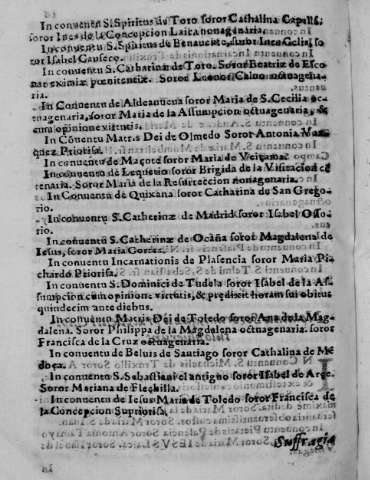 In conuentu S. Spiritus de Toro soror Cathalina
soror Ines de la Concepcion Laica nonagenaria.
In conuentu S. Spiritus de Benauente,
ror Isabel
In conuentu S. Catharinæ de Toro. Soror Beatriz de Esco
bar eximiæ pœnitentiæ. Soror Leonor Caluo
ria.
In Conuentu de Aldeanueua soror Maria de S. Cecilia oc-
tuagenaria, soror Maria de la Assumpcion octuagenaria, &
cum opinione virtutis.
In Conuentu Matris Dei de Olmedo Soror Antonia
quez Priorisa.
In conuentu de Maçote soror Maria de
In conuentu de Lequeitio soror Brigida de la Visitacion
tenaria. Soror Maria de la Resurreccion nonagenaria.
In Conuentu de Quixana soror Catharina de San Grego-
rio.
In conuentu S. Catherinæ de Madrid soror Isabel Osso-
rio.
In conuentu S. Catherinæ de Ocaña soror Magdalena de
Iesus, soror Maria
In conuentu Incarnationis de Plasencia soror Maria Pi-
chardo Priorisa.
In conuentu S. Dominici de Tudela soror Isabel de la As-
sumpcion cum opinione virtutis, & prædixit horam sui obitus
quindecim ante diebus.
In conuentu Matris Dei de Toledo soror Ana de la Mag-
dalena. Soror Philippa de la Magdalena octuagenaria. soror
Francisca de la Cruz octuagenaria.
In conuentu de Beluis de Santiago soror Cathalina de Me
doça.
In conuentu S. Sebastiani el antigno soror Isabel de Arze
Soror Mariana de Flechilla.
In conuentu de Iesus Maria de Toledo soror Francisca de
la Concepcion Supriorisa.
Suffragia